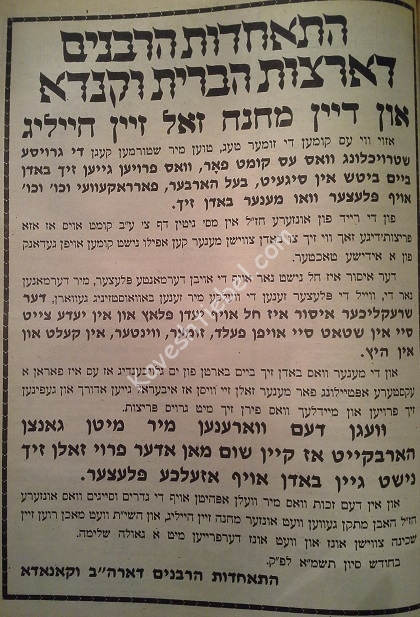 התאחדות הרבנים
דארצות הברית וקנדא
און דיין מחנה זאל זיין הייליג
אזוי ווי עס קומען די זומער טעג, טוען מיר שטורמען קעגן די גרויסע
שטרויכלונג וואס עס קומט פאר, וואס פרויען גייען זיך באדן
ביים ביטש אין סיגעיט, בעל הארבער, פארראקעוועי וכו' וכו'
אויף פלעצער וואו מענער באדן זיך.
פון די רייד פון אונזערע חז"ל אין מס' גיטין דף צ' ע"ב קומט אויס אז אזא
פריצות'דיגע זאך ווי זיך צו באדן צווישן מענער קען אפילו נישט קומען אויפן געדאנק
פון א אידישע טאכטער.
דער איסור איז חל נישט נאר אויף די אויבן דערמאנטע פלעצער, מיר דערמאנען
נאר די, ווייל די פלעצער זענען די וועלכע מיר זענען באוואוסטזיניג געווארן, דער
שרעקליכער איסור איז חל אויף יעדן פלאץ און אין יעדע צייט
סיי אין שטאט סיי אויפן פעלד, זומער, ווינטער, אין קעלט און
אין היץ.
און די מענער וואס באדן זיך ביים בארטן פון ים
עקסטערע אפטיילונג פאר מענער זאלן זיי וויסן אז איבערא' גייען אדורך און געפינען
זיך פרויען און מיידלעך וואס פירן זיך מיט גרויס פריצות.
וועגן דעם ווארענען מיר מיטן גאנצן
הארבקייט אז קיין שום מאן אדער פרוי זאלן זיך
נישט גיין באדן אויף אזעלכע פלעצער.
און אין דעם זכות וואס מיר וועלן אפהיטן אויף די גדרים וסייגים וואס אונזערע
חז"ל האבן מתקן געווען וועט אונזער מחנה זיין הייליג, און השי"ת וועט מאכן רוען זיין
שכינה צווישן אונז און וועט אונז דערפרייען מיט א גאולה שלימה.
בחודש סיון תשמ"א לפ"ק.
התאחדות הרבנים דארה"ב וקאנאדא